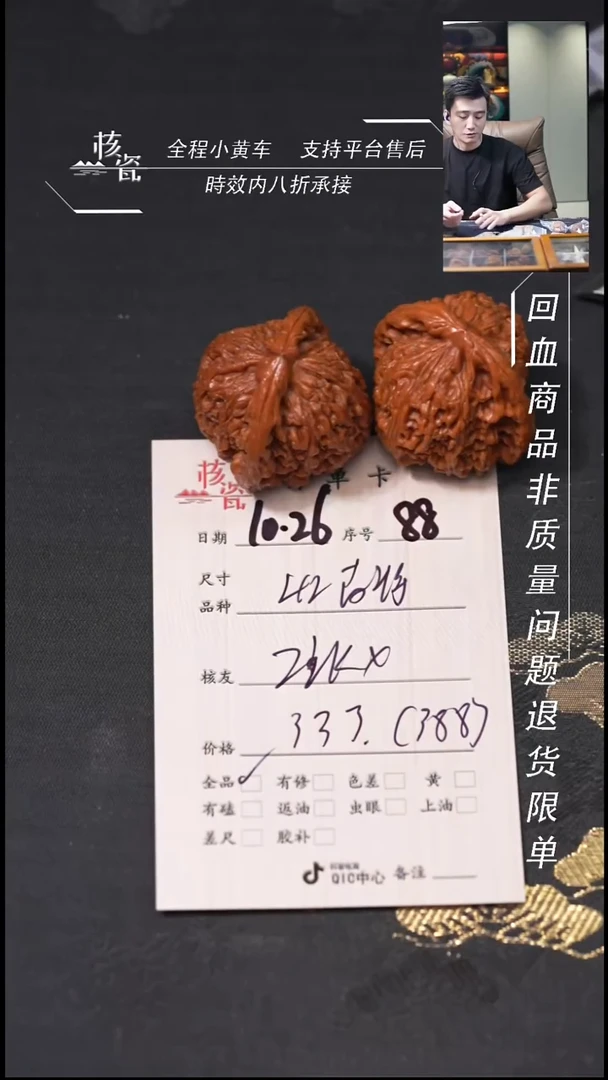 核瓷
全程小黄车 支持平台售后
時效内八折承接
回血商品非质量问题退货限单
核瓷 单卡
日期 10.26 序号 88
尺寸
品种 42
核友
价格 333.(388)
全品 有修 色差 黄
有磕 返油 虫眼 上油
差尺 胶补
QIC中心 备注